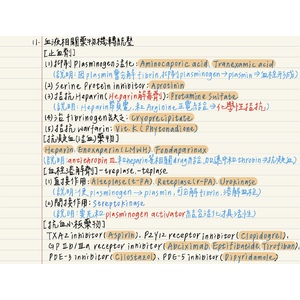 11. 血液相關藥物機轉統整
[止血劑]
(1) 抑制 Plasminogen 活化: Aminocaproic acid、Tranexamic acid
(說明: 因 plasmin 會分解 fibrin, 抑制 plasminogen → plasmin → 血栓形成)
(2) Serine Protein inhibitor: Aprotinin
(3) 拮抗 Heparin (Heparin解毒劑): Protamine Sulfate
(說明: Heparin 帶負電, 和 Arginine 正電結合 → 化學性拮抗)
(4) 治療 fibrinogen 缺乏: Cryoprecipitate
(5) 拮抗 warfarin: Vit. K1 (Phytonadione)
[抗凝血(溶血)藥物]
Heparin、Enoxaparin (LMWH)、Fondaparinux
(說明: antithrobin III 和 heparin 等相關 drug 結合, 加速抑制 throbin 以抗凝血)
[血栓溶解劑] -treplase, -teplase
(1) 直接作用: Alteplase (t-PA)、Reteplase (r-PA)、Urokinase
(說明: 使 plasminogen → plasmin, 分解 fibrin, 溶解血栓)
(2) 間接作用: Streptokinase
(說明: 需先和 plasminogen activator 結合活化才具活性)
[抗血小板藥物]
TXA2 inhibitor (Aspirin)、P2Y12 receptor inhibitor (Clopidogrel)、
GP IIb/IIIa receptor inhibitor (Abciximab, Eptifibatide, Tirofiban)、
PDE-3 inhibitor (Cilostazol)、PDE-5 inhibitor (Dipyridamole)